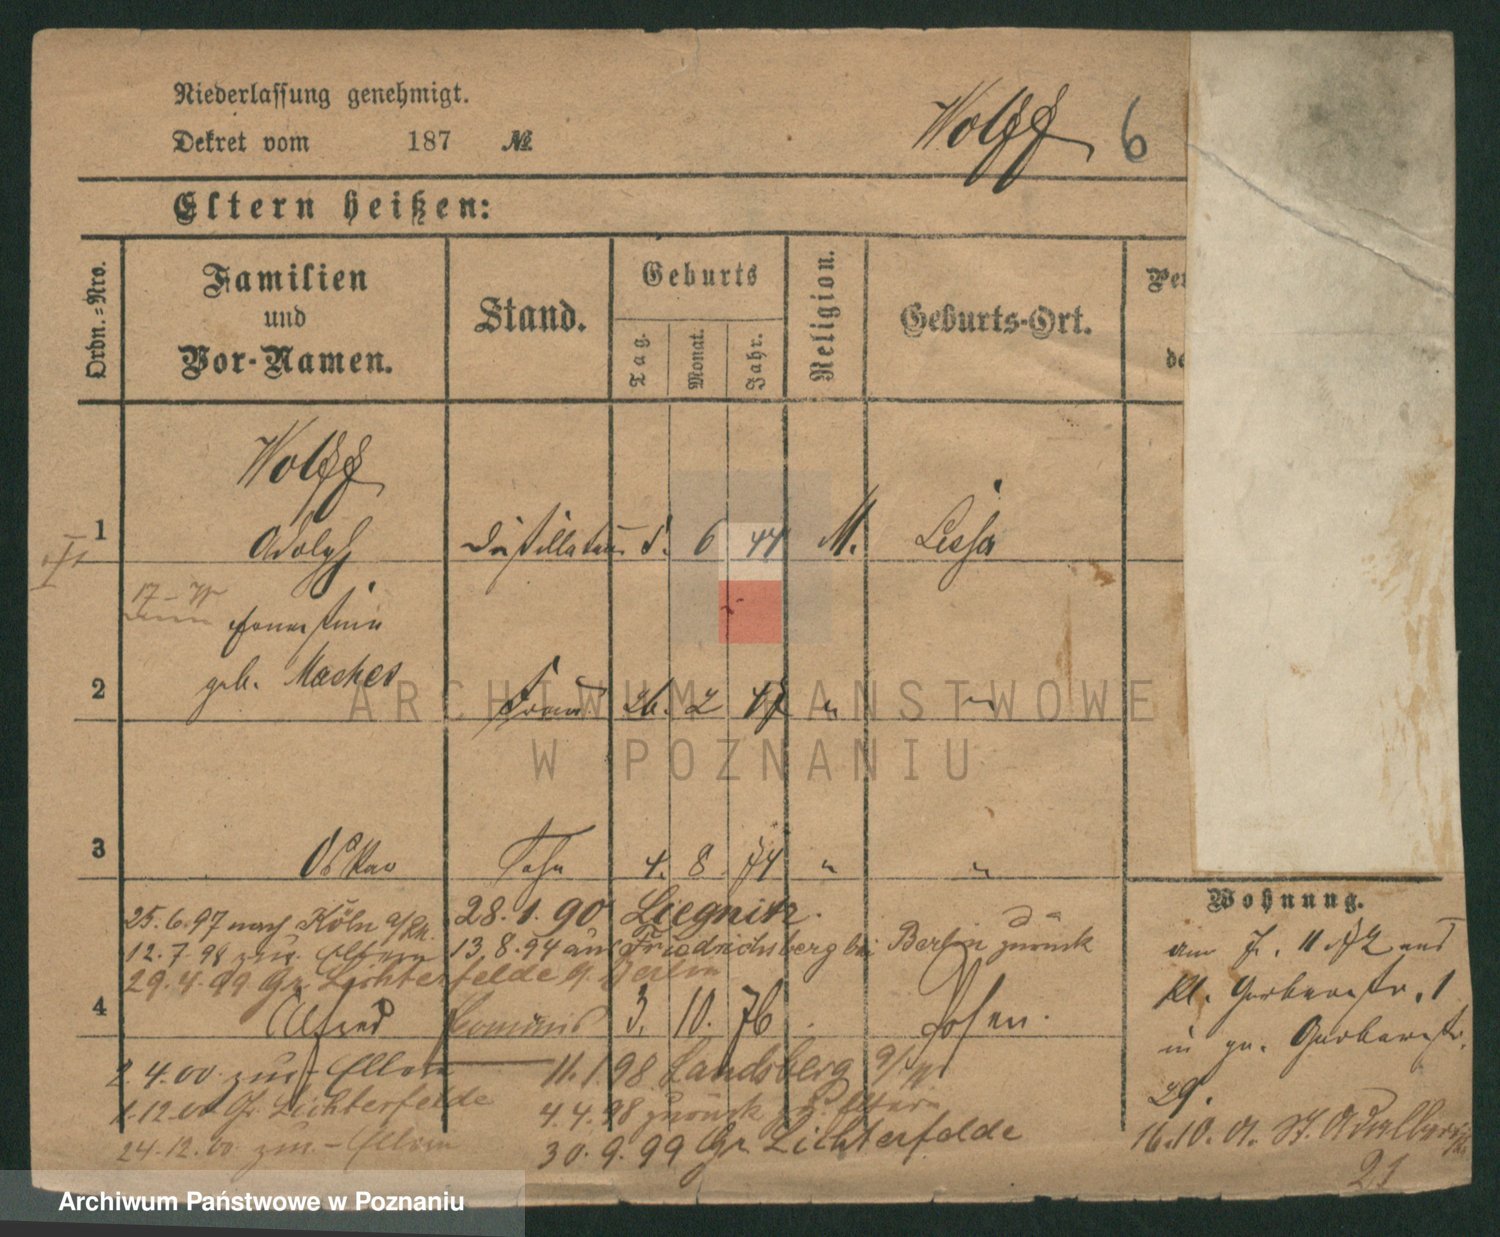 Niederlassung genehmigt.
Dekret vom 187 №
Wolff 6
Eltern heißen:
Ordn.-Nro.
Familien
und
Vor-Namen.
Stand.
Geburts
Tag.
Monat.
Jahr.
Religion.
Geburts-Ort.
Wolff
1 Adolph Destillateur 5. 6 44 M. Lissa
Ernestine
2 geb. Maches Frau 26. 2 47 " "
3 Oskar Sohn 4. 8 74 " "
25.6.97 nach Köln a/Rh. 28.1.90 Liegnitz.
12.7.98 zur. Eltern 13.8.94 aus Friedrichsberg bei Berlin zurück
29.4.99 Gr. Lichterfelde b. Berlin
4 Alfred Commis 3. 10. 76 Posen.
2.4.00 zur. Eltern 11.1.98 Landsberg a/W
1.12.00 Gr. Lichterfelde 4.4.98 zurück z. Eltern
24.12.00 zur. Eltern 30.9.99 Gr. Lichterfelde
Wohnung.
Kl. Gerberstr. 1
in gr. Gerberstr.
29.
16.10.01. St. Adalbertstr.
21
ARCHIWUM PAŃSTWOWE
W POZNANIU
Archiwum Państwowe w Poznaniu